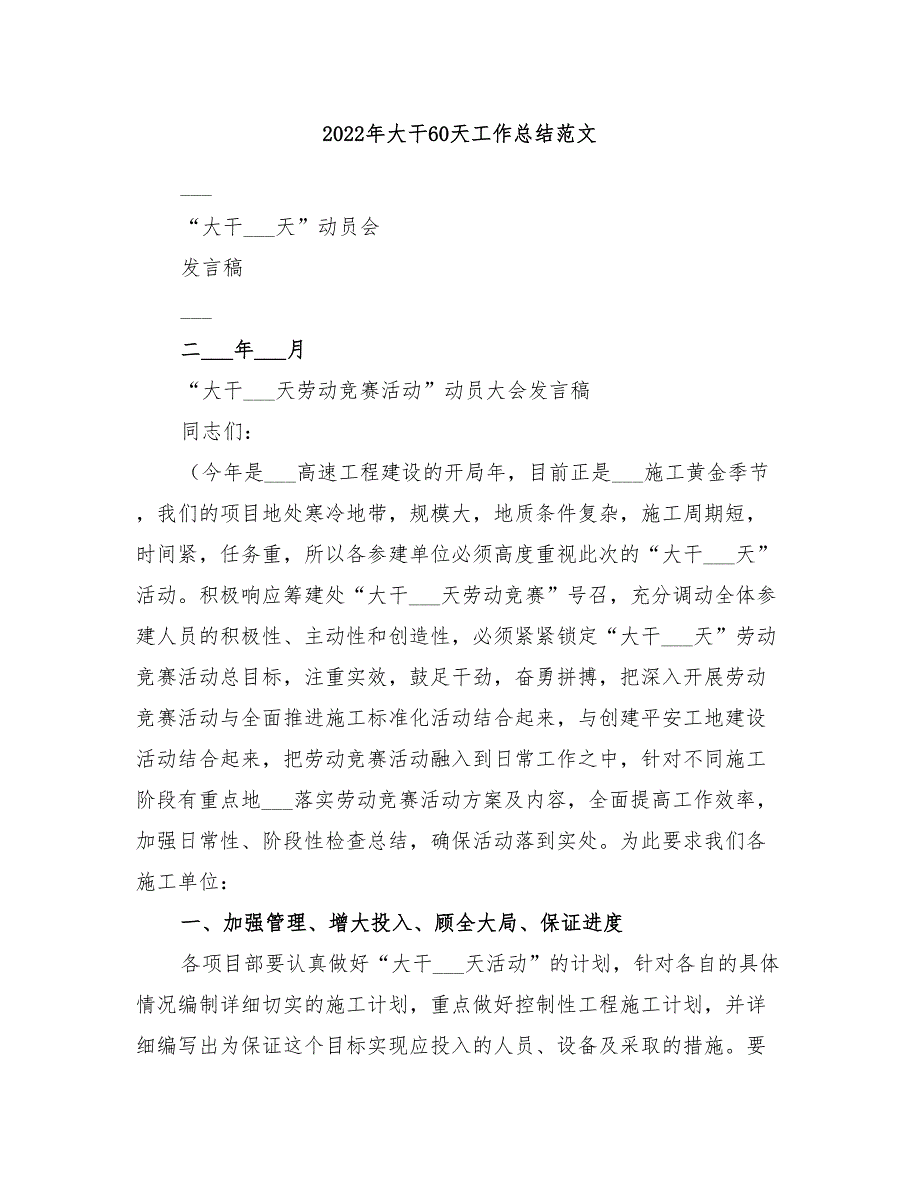 2022年大干60天工作总结范文
___
“大干___天”动员会
发言稿
___
二___年___月
“大干___天劳动竞赛活动”动员大会发言稿
同志们：
（今年是___高速工程建设的开局年，目前正是___施工黄金季节
，我们的项目地处寒冷地带，规模大，地质条件复杂，施工周期短，
时间紧，任务重，所以各参建单位必须高度重视此次的“大干___天”
活动。积极响应筹建处“大干___天劳动竞赛”号召，充分调动全体参
建人员的积极性、主动性和创造性，必须紧紧锁定“大干___天”劳动
竞赛活动总目标，注重实效，鼓足干劲，奋勇拼搏，把深入开展劳动
竞赛活动与全面推进施工标准化活动结合起来，与创建平安工地建设
活动结合起来，把劳动竞赛活动融入到日常工作之中，针对不同施工
阶段有重点地___落实劳动竞赛活动方案及内容，全面提高工作效率，
加强日常性、阶段性检查总结，确保活动落到实处。为此要求我们各
施工单位：
一、加强管理、增大投入、顾全大局、保证进度
各项目部要认真做好“大干___天活动”的计划，针对各自的具体
情况编制详细切实的施工计划，重点做好控制性工程施工计划，并详
细编写出为保证这个目标实现应投入的人员、设备及采取的措施。要